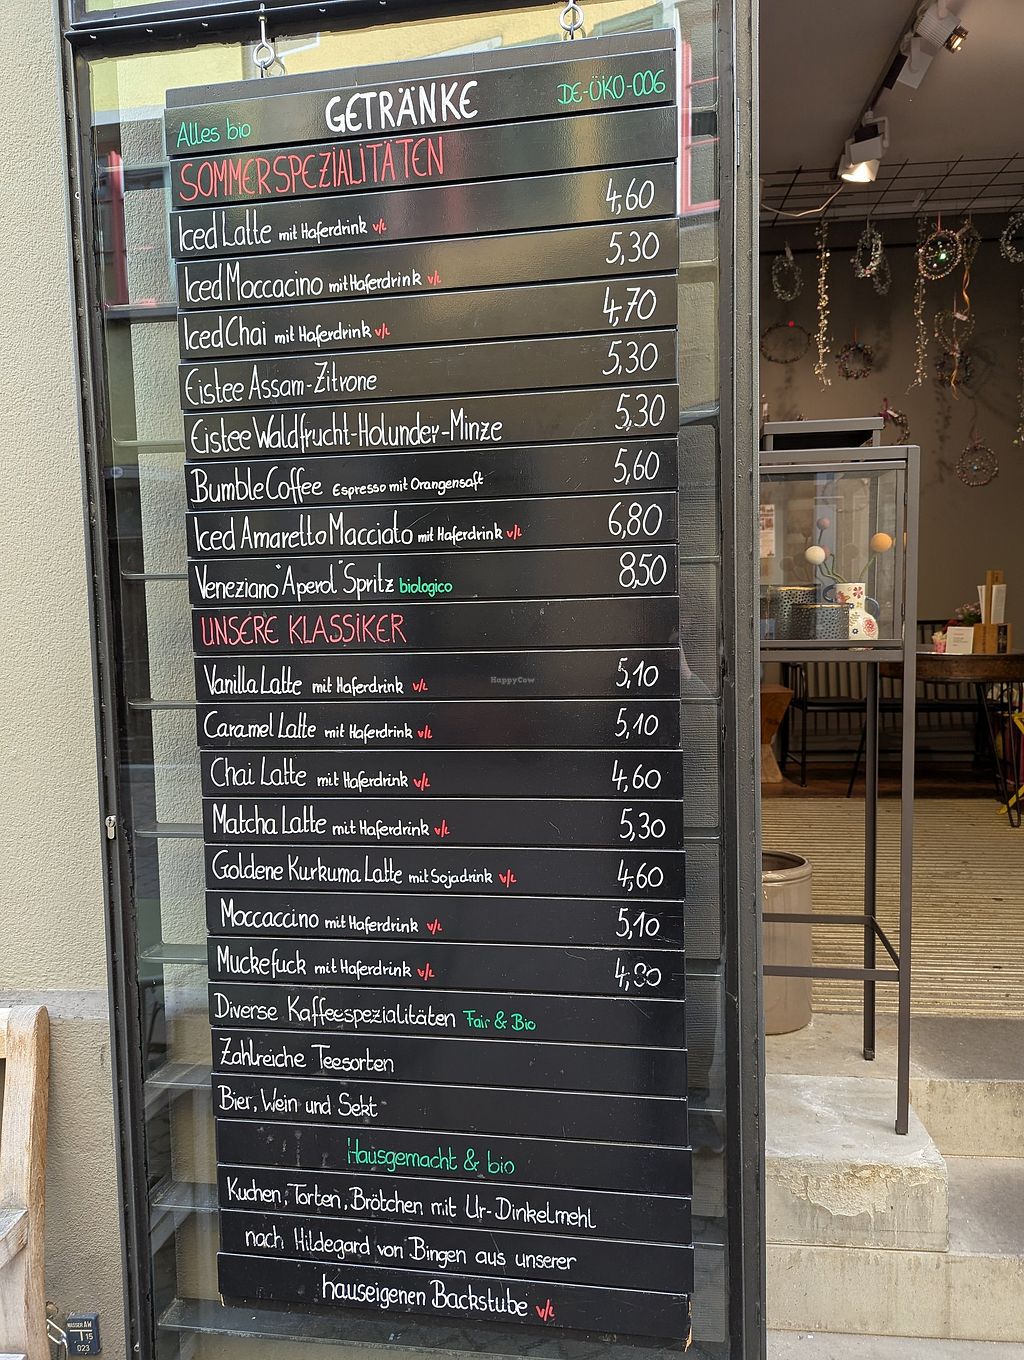 GETRÄNKE DE-ÖKO-006
Alles bio
SOMMERSPEZIALITÄTEN
Iced Latte mit Haferdrink v/L 4,60
Iced Moccacino mit Haferdrink v/L 5,30
Iced Chai mit Haferdrink v/L 4,70
Eistee Assam-Zitrone 5,30
Eistee Waldfrucht-Holunder-Minze 5,30
Bumble Coffee Espresso mit Orangensaft 5,60
Iced Amaretto Macciato mit Haferdrink v/L 6,80
Veneziano "Aperol" Spritz biologico 8,50
UNSERE KLASSIKER
Vanilla Latte mit Haferdrink v/L 5,10
Caramel Latte mit Haferdrink v/L 5,10
Chai Latte mit Haferdrink v/L 4,60
Matcha Latte mit Haferdrink v/L 5,30
Goldene Kurkuma Latte mit Sojadrink v/L 4,60
Moccaccino mit Haferdrink v/L 5,10
Muckefuck mit Haferdrink v/L
Diverse Kaffeespezialitäten Fair & Bio
Zahlreiche Teesorten
Bier, Wein und Sekt
Hausgemacht & bio
Kuchen, Torten, Brötchen mit Ur-Dinkelmehl
nach Hildegard von Bingen aus unserer
hauseigenen Backstube v/L
HappyCow
WASSER AW
15
023